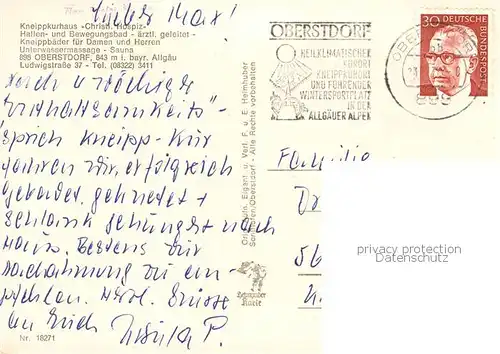 Lieber Max!
Kneippkurhaus - Christl. Hospiz-
Hallen- und Bewegungsbad - ärztl. geleitet -
Kneippbäder für Damen und Herren
Unterwassermassage - Sauna
898 OBERSTDORF, 843 m i. bayr. Allgäu
Ludwigstraße 37 - Tel. (08322) 3411
nach 4 wöchiger
"Enthaltsamkeits"-
sprich Kneipp-Kur
fahren wir, erfolgreich
gebadet, geknetet +
schlank schungst nach
Haus. Bestens zur
Nachahmung zu em-
pfehlen. Herzl. Grüsse
an Euch Ursula P.
Nr. 18271
Orig. Aufn. Eigent. u. Verl. F. u. E. Heimhuber
Sonthofen/Oberstdorf - Alle Rechte vorbehalten
Heimhuber
Karte
OBERSTDORF
HEILKLIMATISCHER
KURORT
KNEIPPKURORT
UND FÜHRENDER
WINTERSPORTPLATZ
IN DEN
ALLGÄUER ALPEN
30
DEUTSCHE
BUNDESPOST
898
Familie
Dr
56
privacy protection
www.ansichtskartenversand.com